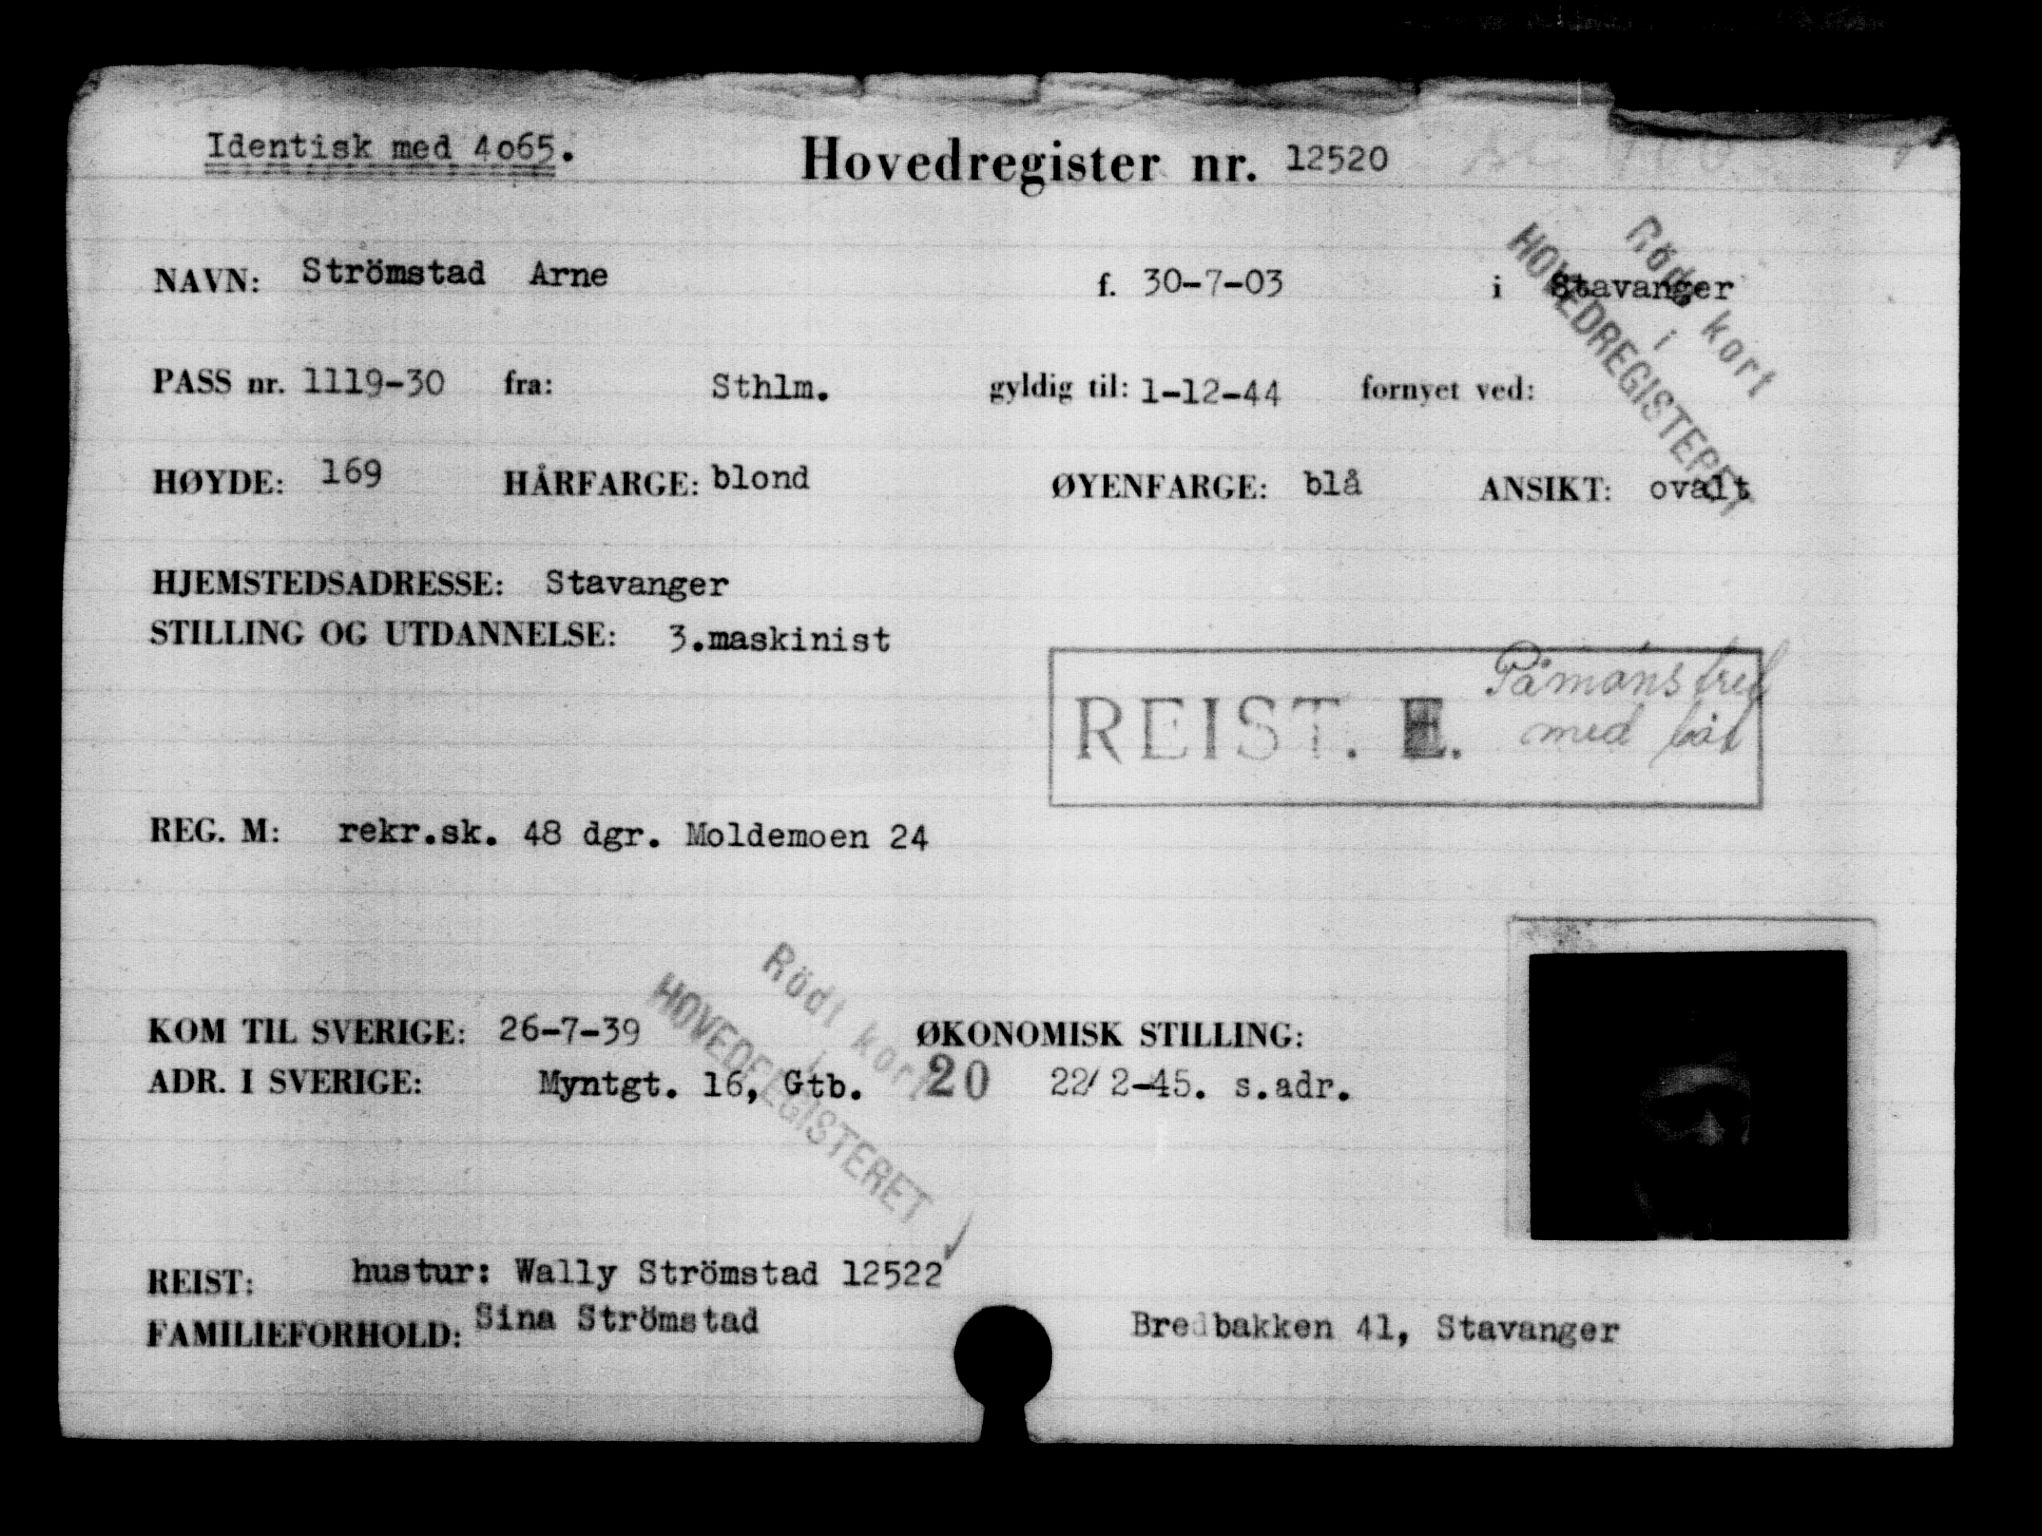 Identisk med 4o65.
Hovedregister nr. 12520
Rödt kort
i
HOVEDREGISTERET
NAVN: Strömstad Arne f. 30-7-03 i Stavanger
PASS nr. 1119-30 fra: Sthlm. gyldig til: 1-12-44 fornyet ved:
HØYDE: 169 HÅRFARGE: blond ØYENFARGE: blå ANSIKT: ovalt
HJEMSTEDSADRESSE: Stavanger
STILLING OG UTDANNELSE: 3.maskinist
REIST. E.
med båt
REG. M: rekr.sk. 48 dgr. Moldemoen 24
Rödt kort
i
HOVEDREGISTERET
KOM TIL SVERIGE: 26-7-39 ØKONOMISK STILLING:
ADR. I SVERIGE: Myntgt. 16, Gtb. 20 22/ 2-45. s.adr.
REIST: hustur: Wally Strömstad 12522
FAMILIEFORHOLD: Sina Strömstad Bredbakken 41, Stavanger